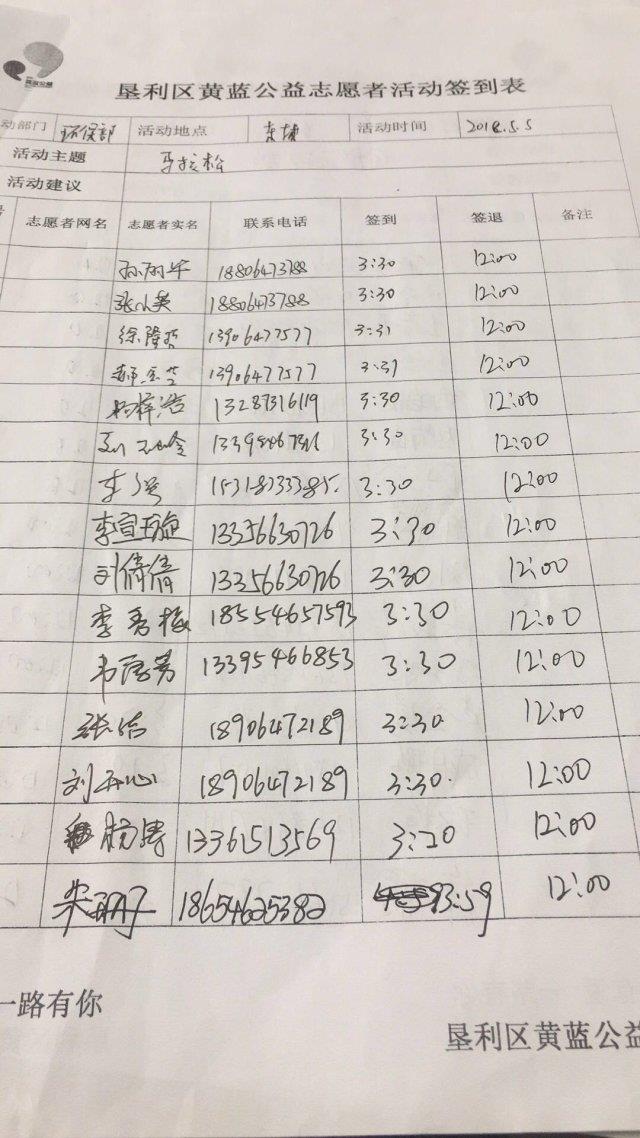 黄蓝公益
垦利区黄蓝公益志愿者活动签到表
动部门 环保部 活动地点 活动时间 2018.5.5
活动主题 马拉松
活动建议
志愿者网名 志愿者实名 联系电话 签到 签退 备注
18806473788 3:30 12:00
张小英 18806473788 3:30 12:00
徐隆哲 13906477577 3:31 12:00
13906477577 3:31 12:00
杨梓浩 13287316119 3:30 12:00
3:30 12:00
15318733385. 3:30 12:00
李宣璇 13356630726 3:30 12:00
刘倩倩 13356630726 3:30 12:00
李秀梅 18554657593 3:30 12:00
13395466853 3:30 12:00
张洁 18906472189 3:30 12:00
刘开心 18906472189 3:30. 12:00
杨涛 13361513569 3:20 12:00
朱 18654625382 3:59 12:00
一路有你
垦利区黄蓝公益